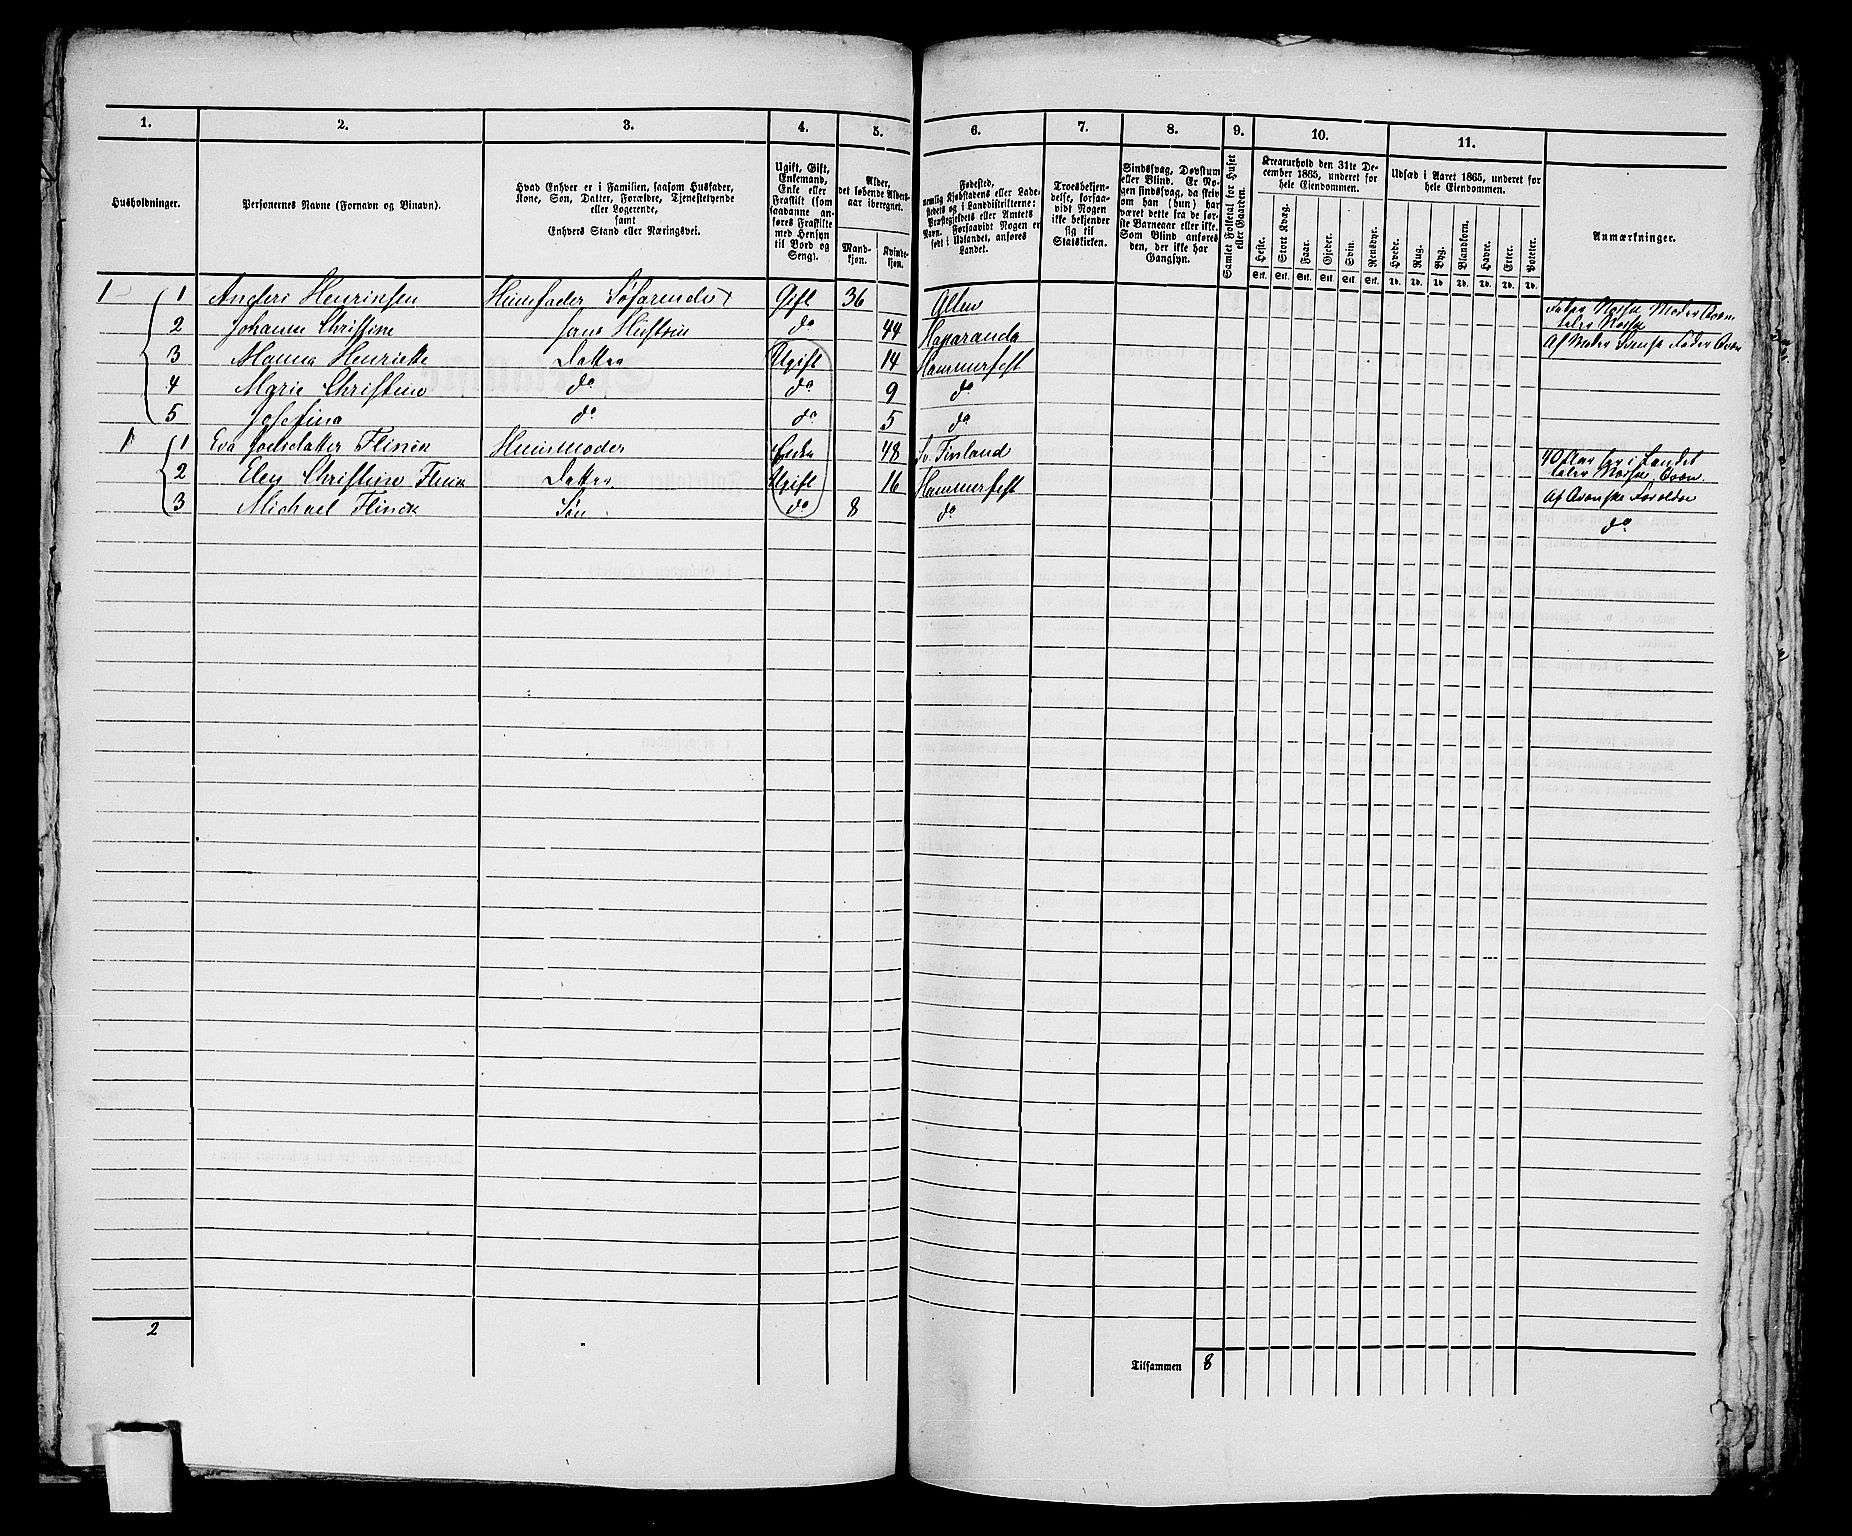 1. 2. 3. 4. 5. 6. 7. 8. 9. 10. 11.
Husholdninger.
Personernes Navne (Fornavn og Binavn).
Hvad Enhver er i Familien, saasom Husfader,
Kone, Søn, Datter, Forældre, Tjenestetyende
eller Logerende,
samt
Enhvers Stand eller Næringsvei.
Ugift, Gift,
Enkemand,
Enke eller
Fraskilt (som
saadanne an-
føres Fraskilte
med Hensyn
til Bord og
Seng).
Alder,
det løbende Alders-
aar iberegnet.
Mand-
kjøn.
Kvinde-
kjøn.
Fødested,
nemlig Kjøbstadens eller Lade-
stedets og i Landdistrikterne:
Præstegjeldets eller Amtets
Navn. Forsaavidt Nogen er
født i Udlandet, anføres
Landet.
Troesbekjen-
delse, forsaa-
vidt Nogen
ikke bekjender
sig til
Statskirken.
Sindssvag, Døvstum
eller Blind. Er No-
gen sindssvag, da skriv
om han (hun) har
været dette fra de før-
ste Barneaar eller ikke.
Som Blind anføres
den, der ikke har
Gangsyn.
Samlet Folketal for Huset
eller Gaarden.
Kreaturhold den 31te De-
cember 1865, underet for
hele Eiendommen.
Heste. Stort Kvæg. Faar. Gjeder. Svin. Rensdyr.
Stk. Stk. Stk. Stk. Stk. Stk.
Udsæd i Aaret 1865, underet for
hele Eiendommen.
Hvede. Rug. Byg. Blandkorn. Havre. Erter. Poteter.
Td. Td. Td. Td. Td. Td. Td.
Anmærkninger.
1 1 Anders Henriksen Huusfader Søfarende Gift 36 Alten
2 Johanne Christine hans Hustru do 44 Haparanda
3 Hanna Henrikke Datter Ugift 14 Hammerfest
4 Marie Christine do do 9 do
5 Josefina do do 5 do
1 1 Eva Joensdatter Huusmoder Enke 48 Sv. Finland 40 Aar her i Landet
2 Elen Christine Datter Ugift 16 Hammerfest Af Qvænske Forældre
3 Michael Søn do 8 do do
2
Tilsammen 8